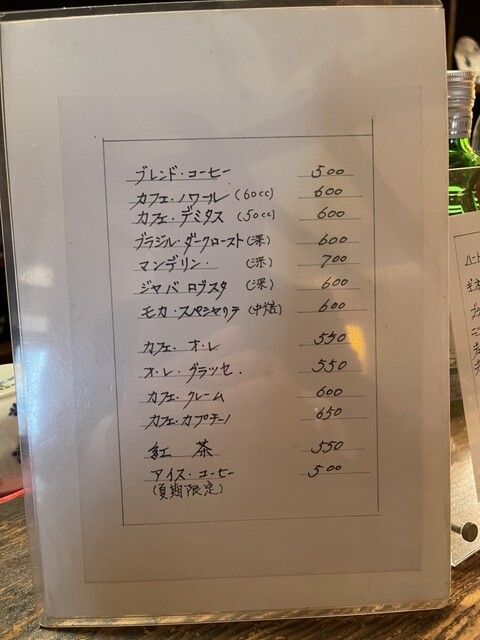 ブレンド・コーヒー 500
カフェ・ノワール (60cc) 600
カフェ・デミタス (50cc) 600
ブラジル・ダークロースト (深) 600
マンデリン・ (深) 700
ジャバ ロブスタ (深) 600
モカ・スペシャリテ (中煎) 600
カフェ・オ・レ 550
オ・レ・グラッセ. 550
カフェ・クレーム 600
カフェ・カプチーノ 650
紅 茶 550
アイス・コーヒー 500
(夏期限定)
ハート